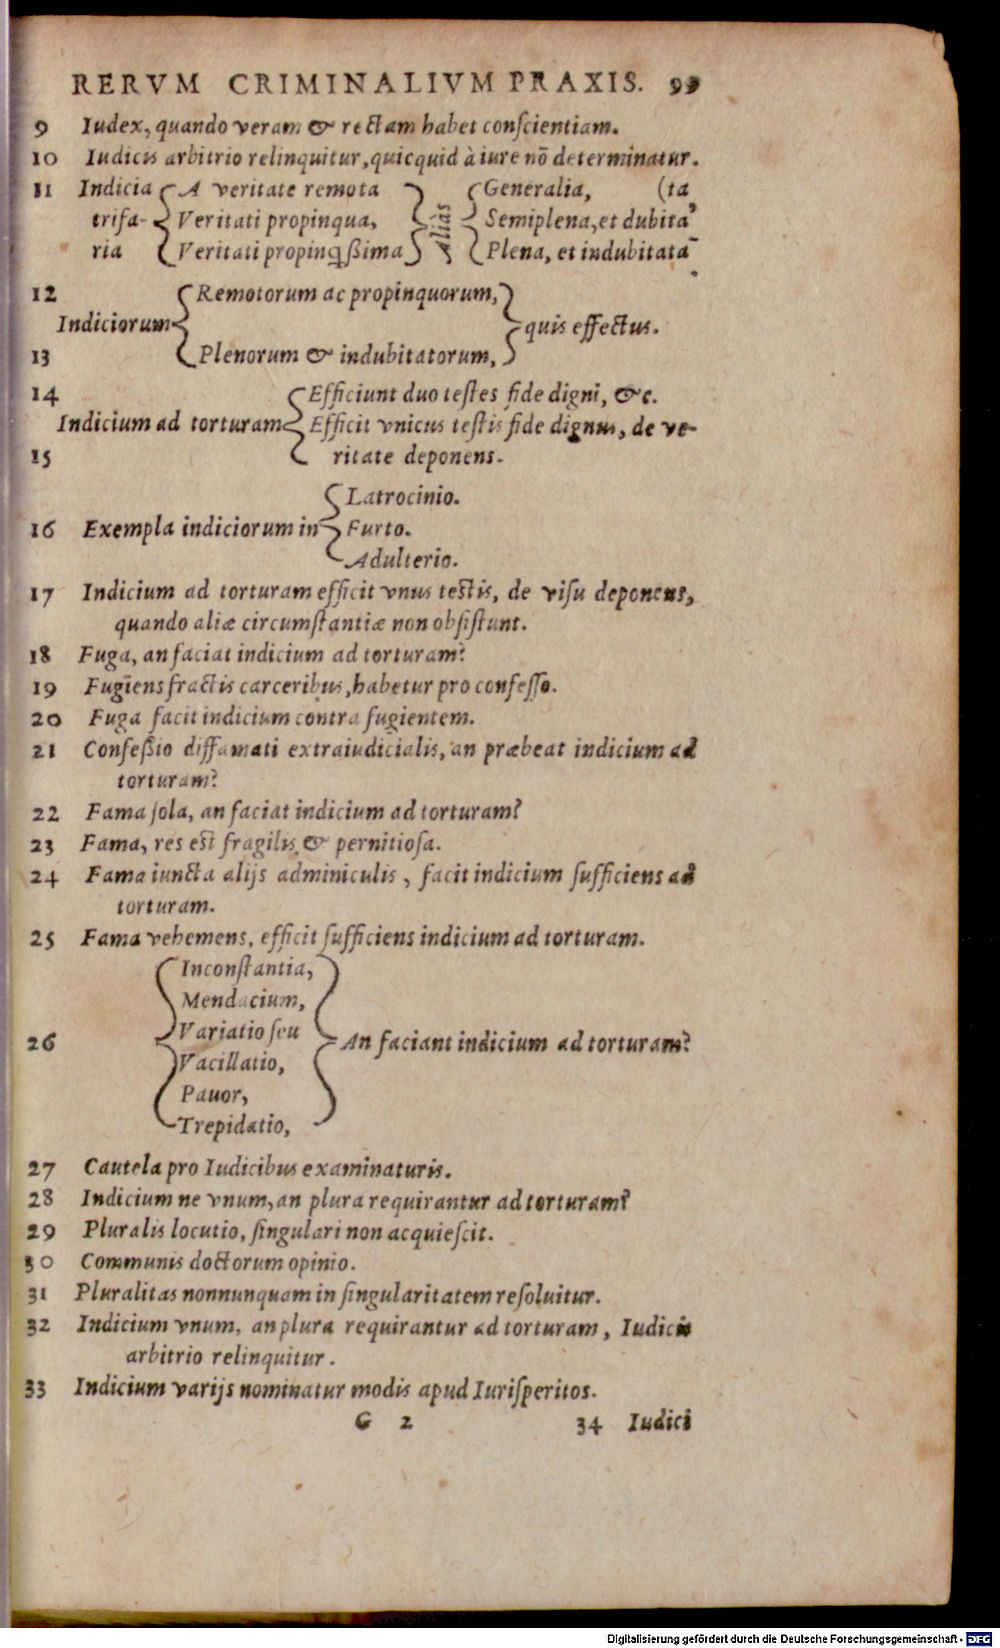 RERVM CRIMINALIVM PRAXIS. 99
9 Iudex, quando veram & rectam habet conſcientiam.
10 Iudicis arbitrio relinquitur, quicquid à iure nō determinatur.
11 Indicia { A veritate remota } { Generalia, (ta
trifa- { Veritati propinqua, } Aliàs { Semiplena, et dubita
ria { Veritati propinq́ßima } { Plena, et indubitata
12 { Remotorum ac propinquorum, }
Indiciorum { } quis effectus.
13 { Plenorum & indubitatorum, }
14 { Efficiunt duo teſtes fide digni, &c.
Indicium ad torturam { Efficit vnicus teſtis fide dignus, de ve-
15 { ritate deponens.
{ Latrocinio.
16 Exempla indiciorum in { Furto.
{ Adulterio.
17 Indicium ad torturam efficit vnus teſtis, de viſu deponens,
quando aliæ circumſtantiæ non obſiſtunt.
18 Fuga, an faciat indicium ad torturam?
19 Fugiens fractis carceribus, habetur pro confeſſo.
20 Fuga facit indicium contra fugientem.
21 Confeßio diffamati extraiudicialis, an præbeat indicium ad
torturam?
22 Fama ſola, an faciat indicium ad torturam?
23 Fama, res eſt fragilis & pernitioſa.
24 Fama iuncta alijs adminiculis, facit indicium ſufficiens ad
torturam.
25 Fama vehemens, efficit ſufficiens indicium ad torturam.
{ Inconſtantia, }
{ Mendacium, }
{ Variatio ſeu }
26 { } An faciant indicium ad torturam?
{ Vacillatio, }
{ Pauor, }
{ Trepidatio, }
27 Cautela pro Iudicibus examinaturis.
28 Indicium ne vnum, an plura requirantur ad torturam?
29 Pluralis locutio, ſingulari non acquieſcit.
30 Communis doctorum opinio.
31 Pluralitas nonnunquam in ſingularitatem reſoluitur.
32 Indicium vnum, an plura requirantur ad torturam, Iudicis
arbitrio relinquitur.
33 Indicium varijs nominatur modis apud Iuriſperitos.
G 2 34 Iudici
Digitalisierung gefördert durch die Deutsche Forschungsgemeinschaft - DFG